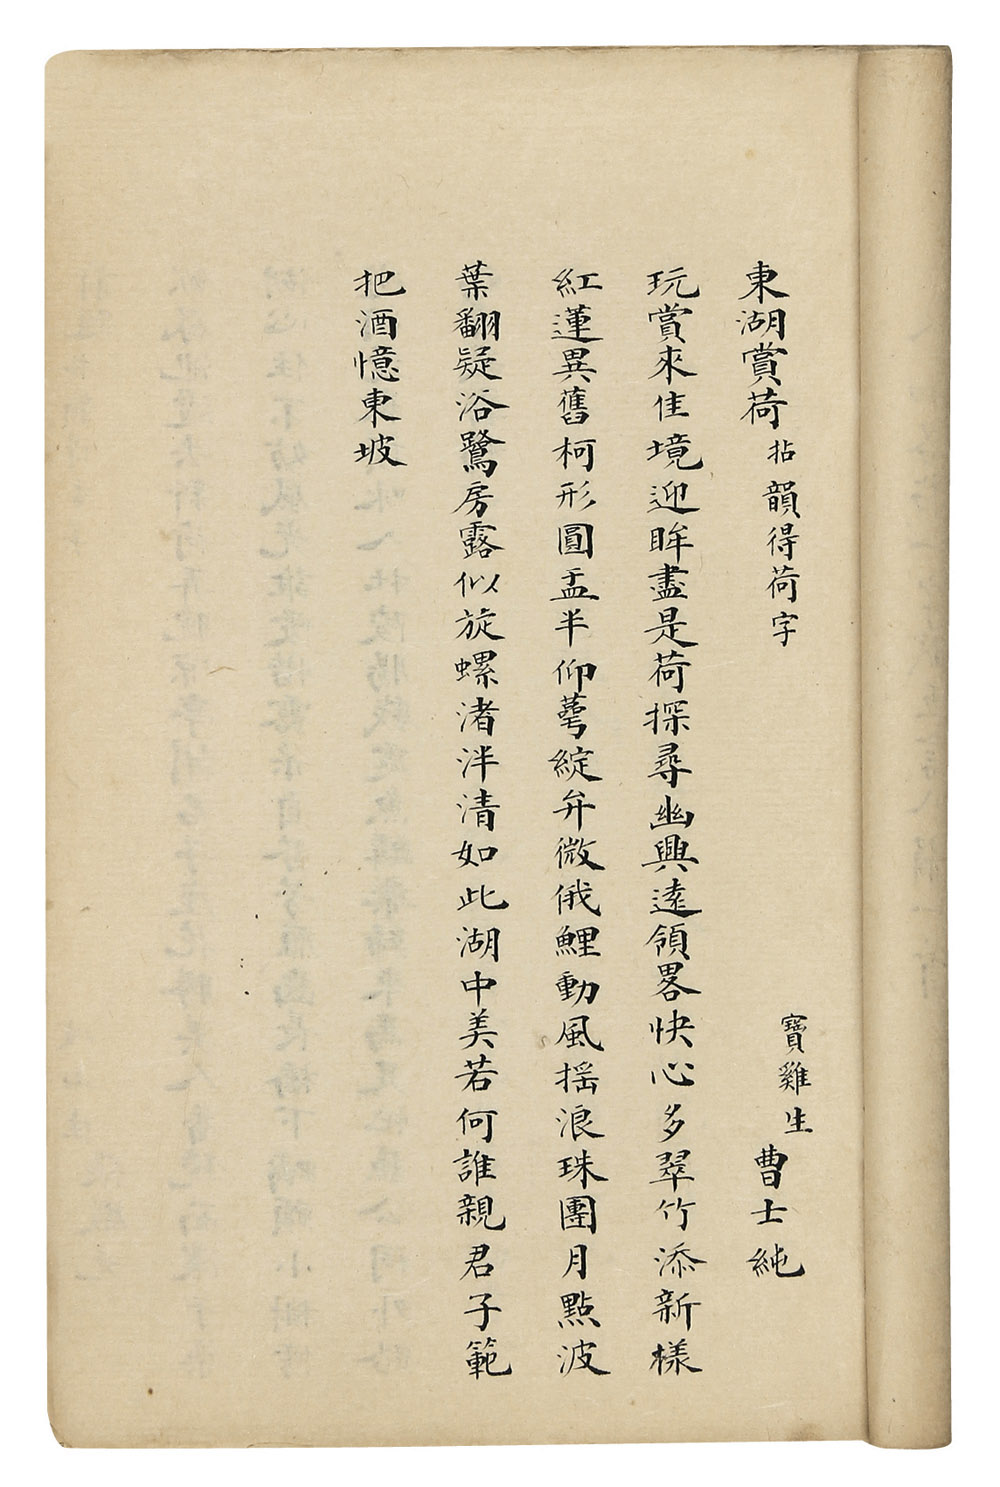 東湖賞荷 拈韻得荷字 寶雞生 曹士純
玩賞來佳境迎眸盡是荷探尋幽興遠領畧快心多翠竹添新樣
紅蓮異舊柯形圓盂半仰蕚綻弁微俄鯉動風揺浪珠團月點波
葉翻疑浴鷺房露似旋螺渚泮清如此湖中美若何誰親君子範
把酒憶東坡